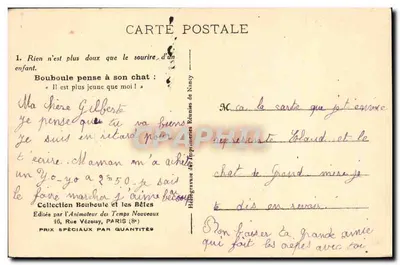 CARTE POSTALE
1. Rien n'est plus doux que le sourire d'un
enfant.
Bouboule pense à son chat :
« Il est plus jeune que moi ! »
Ma chère Gilberte
je pense que tu va bien
je suis en retard pour
t écrire. Maman m'a achet
un Yo-yo a 2F50. je sais
le faire marcher j'aime beaucoup
Collection Bouboule et les Bêtes
Editée par l'Animateur des Temps Nouveaux
10, Rue Vézelay, PARIS (8e)
PRIX SPÉCIAUX PAR QUANTITÉS
Héliogravure des Imprimeries Réunies de Nancy
M ca. la carte que je t envoie
représente et le
chat de Grand mère je
te dis en revoir.
Bon baiser ta grande amie
qui fait les avec toi